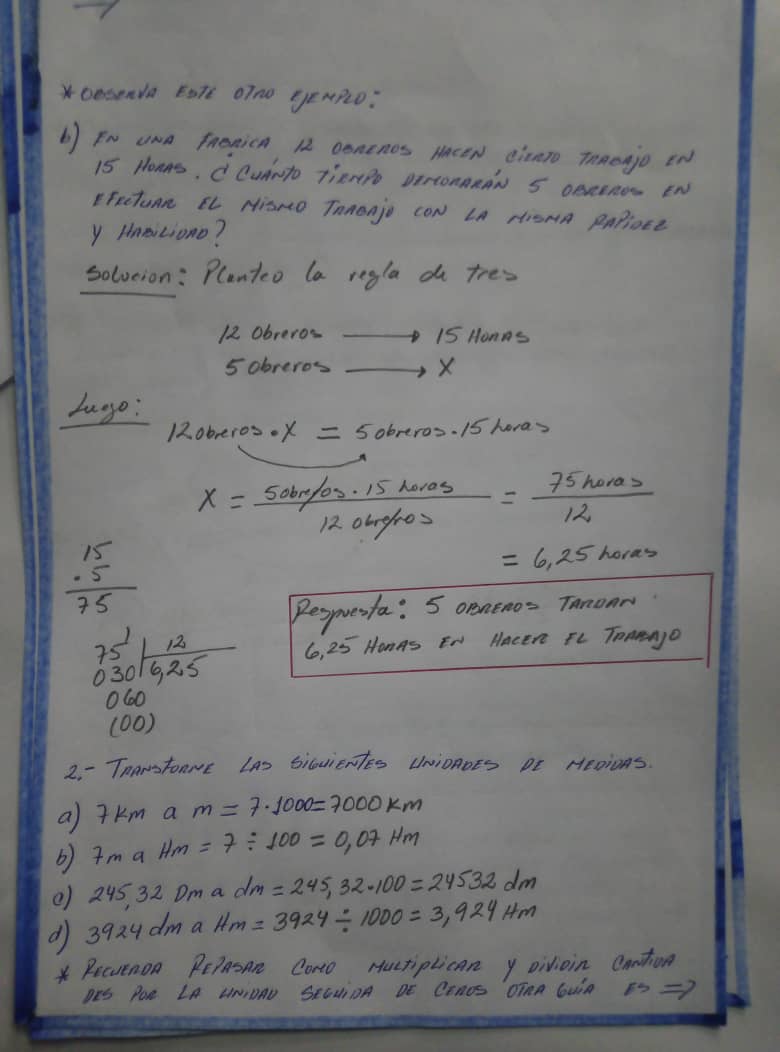 * OBSERVA ESTE OTRO EJEMPLO:
b) EN UNA FABRICA 12 OBREROS HACEN CIERTO TRABAJO EN
15 HORAS. ¿CUÁNTO TIEMPO DEMORARÁN 5 OBREROS EN
EFECTUAR EL MISMO TRABAJO CON LA MISMA RAPIDEZ
Y HABILIDAD?
Solucion: Planteo la regla de tres
12 Obreros → 15 HORAS
5 obreros → X
Luego:
12 obreros . X = 5 obreros . 15 horas
X = 5 obreros . 15 horas / 12 obreros = 75 horas / 12
= 6,25 horas
15
. 5
75
75' | 12
030 | 6,25
060
(00)
Respuesta: 5 OBREROS TARDAN
6,25 HORAS EN HACER EL TRABAJO
2.- TRANSFORME LAS SIGUIENTES UNIDADES DE MEDIDAS.
a) 7 Km a m = 7 . 1000 = 7000 Km
b) 7m a Hm = 7 ÷ 100 = 0,07 Hm
c) 245,32 Dm a dm = 245,32 . 100 = 24532 dm
d) 3924 dm a Hm = 3924 ÷ 1000 = 3,924 Hm
* RECUERDA REPASAR COMO MULTIPLICAR Y DIVIDIR CANTIDA
DES POR LA UNIDAD SEGUIDA DE CEROS OTRA GUÍA ES ⇒